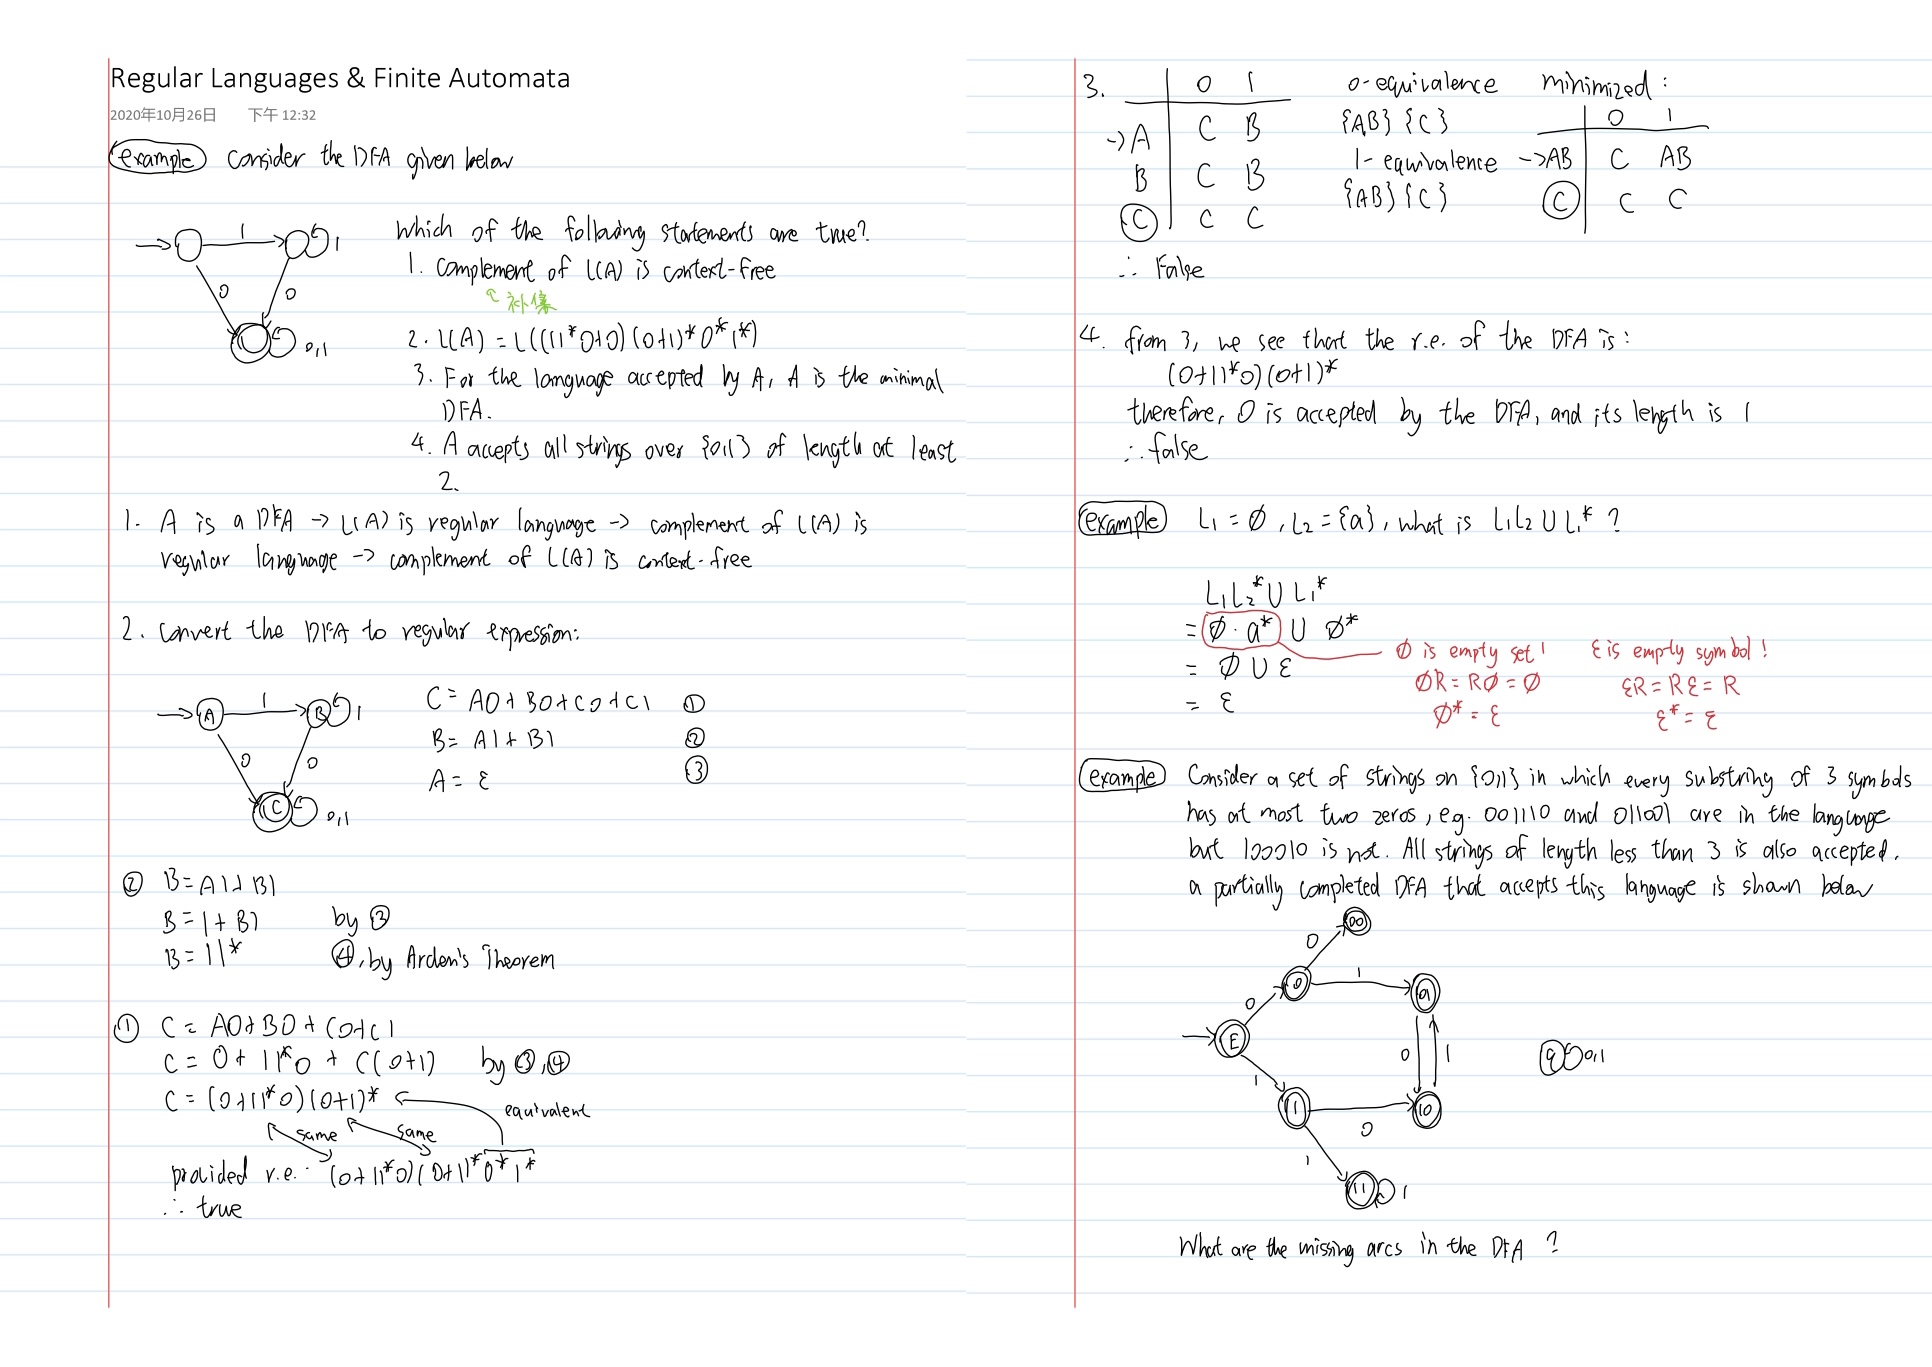 Regular Languages & Finite Automata
2020年10月26日 下午 12:32
example Consider the DFA given below
1
1
0
0
0,1
Which of the following statements are true?
1. complement of L(A) is context-free
↑ 补集
2. L(A) = L((11*0+0)(0+1)*0*1*)
3. For the language accepted by A, A is the minimal
DFA.
4. A accepts all strings over {0,1} of length at least
2.
1. A is a DFA → L(A) is regular language → complement of L(A) is
regular language → complement of L(A) is context-free
2. Convert the DFA to regular expression:
A
1
B
1
0
0
C
0,1
C = A0+B0+C0+C1 ①
B = A1+B1 ②
A = ε ③
② B = A1+B1
B = 1+B1 by ③
B = 11* ④, by Arden's Theorem
① C = A0+B0+C0+C1
C = 0+11*0 + C(0+1) by ③,④
C = (0+11*0)(0+1)*
equivalent
same
same
provided r.e.: (0+11*0)(0+1)*0*1*
∴ true
3. 0 1
→A C B
B C B
C C C
0-equivalence
{AB} {C}
1-equivalence
{AB} {C}
minimized:
0 1
→AB C AB
C C C
∴ False
4. from 3, we see that the r.e. of the DFA is:
(0+11*0)(0+1)*
therefore, 0 is accepted by the DFA, and its length is 1
∴ false
example L₁ = ∅, L₂ = {a}, what is L₁L₂ ∪ L₁* ?
L₁L₂* ∪ L₁*
= ∅·a* ∪ ∅*
= ∅ ∪ ε
= ε
∅ is empty set!
∅R = R∅ = ∅
∅* = ε
ε is empty symbol!
εR = Rε = R
ε* = ε
example Consider a set of strings on {0,1} in which every substring of 3 symbols
has at most two zeros, e.g. 001110 and 011001 are in the language
but 100010 is not. All strings of length less than 3 is also accepted.
a partially completed DFA that accepts this language is shown below
00
0
0
1
01
0
E
0
1
q
0,1
1
1
0
10
1
11
1
What are the missing arcs in the DFA ?